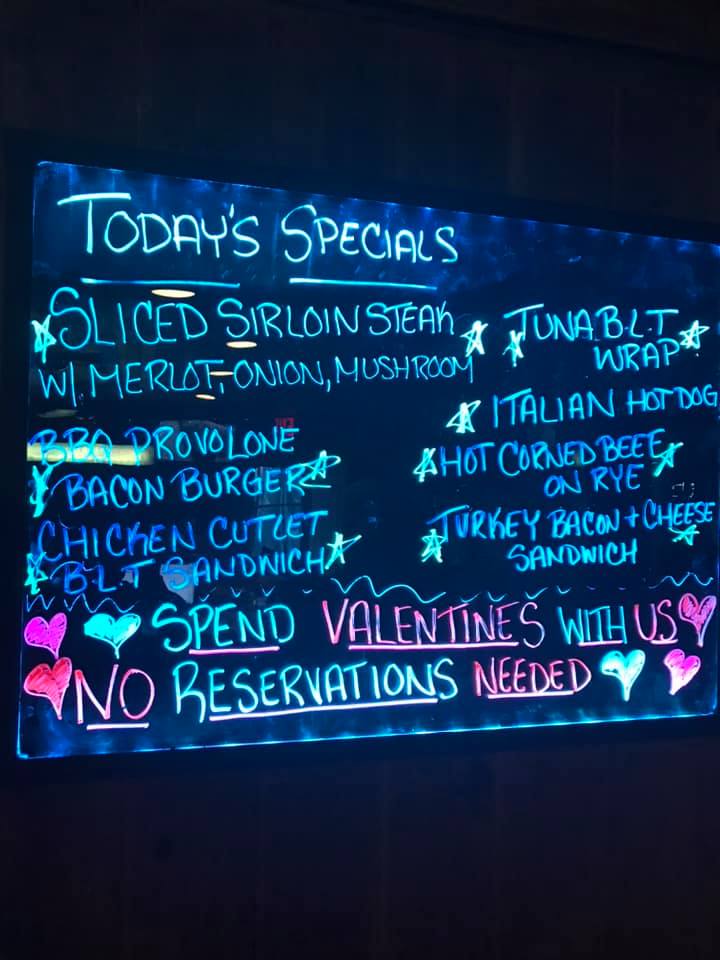 TODAY'S SPECIALS
SLICED SIRLOIN STEAK
W/ MERLOT, ONION, MUSHROOM
BBQ PROVOLONE
BACON BURGER
CHICKEN CUTLET
B.L.T SANDWICH
TUNA B.L.T
WRAP
ITALIAN HOT DOG
HOT CORNED BEEF
ON RYE
TURKEY BACON + CHEESE
SANDWICH
SPEND VALENTINES WITH US
NO RESERVATIONS NEEDED